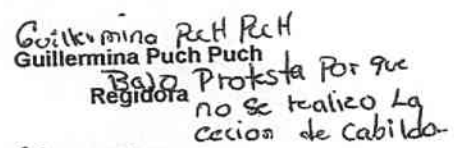 Guillermina Puch Puch
Guillermina Puch Puch
Bajo Protesta Por que
Regidora
no se realizo La
cecion de Cabildo